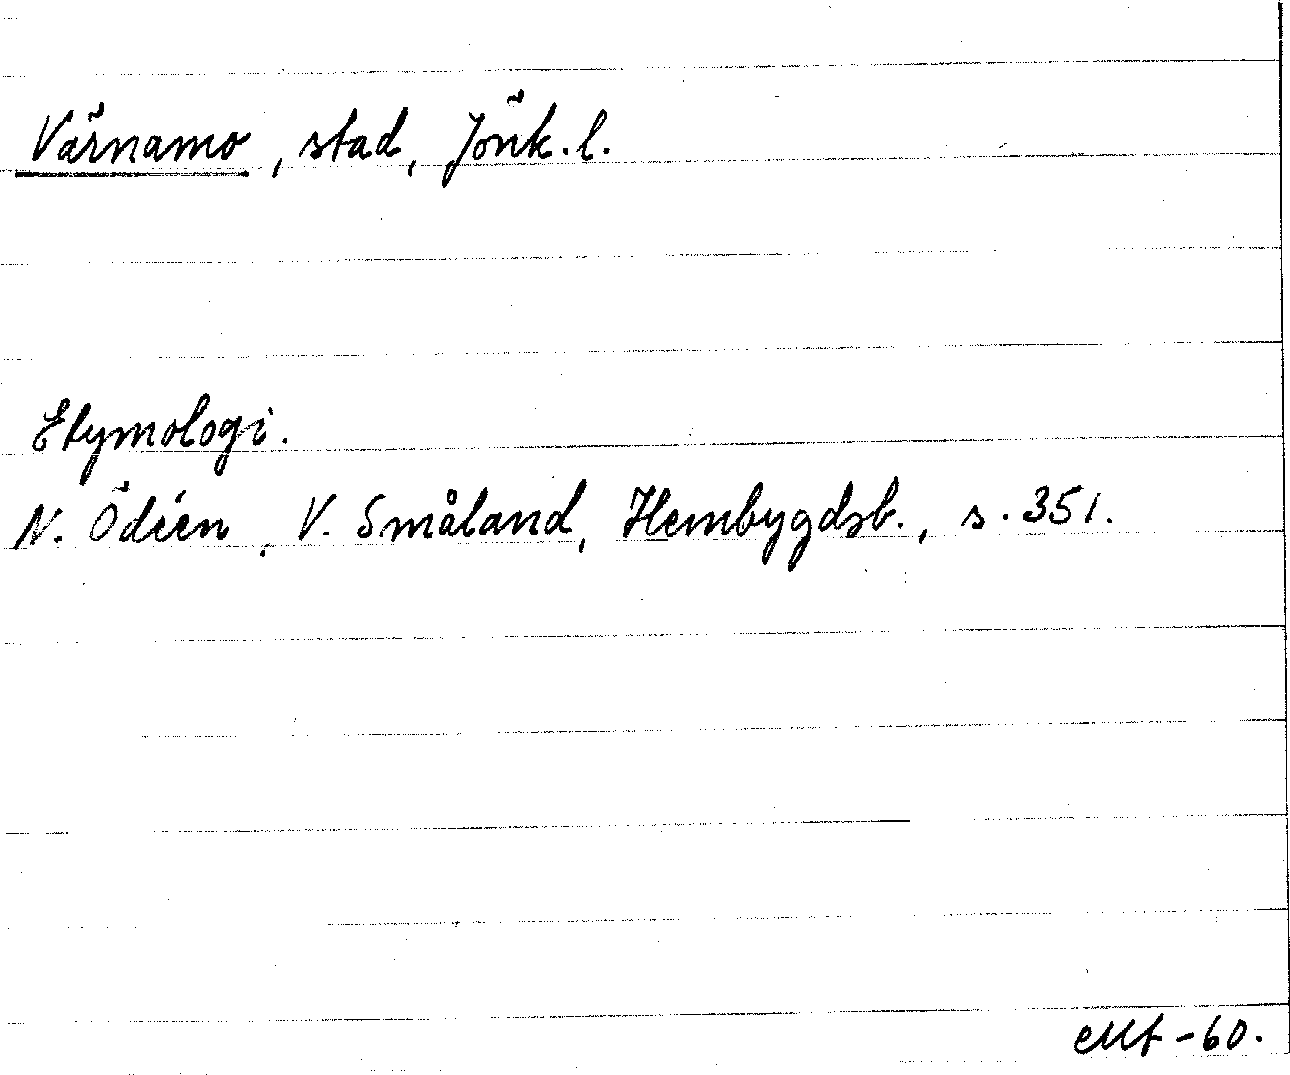 Värnamo, stad, Jönk. l.
Etymologi.
N. Ödéen, V. Småland, Hembygdsb., s. 351.
-60.